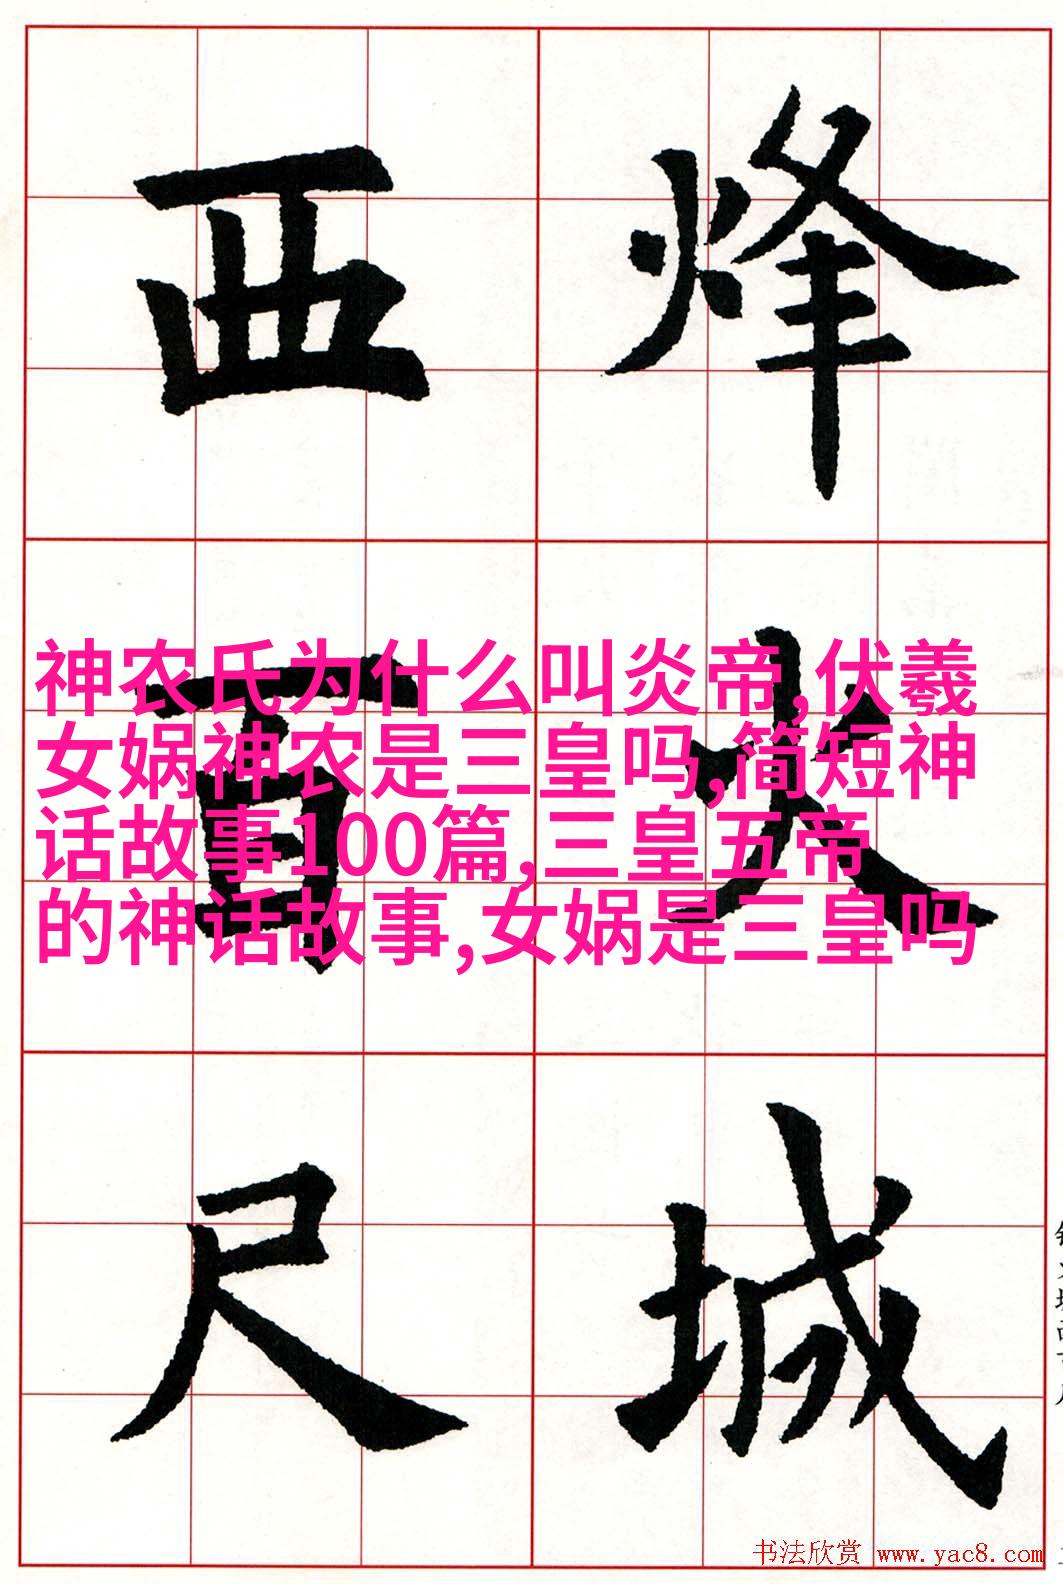 烽火城
西百尺
神农氏为什么叫炎帝,伏羲
女娲神农是三皇吗,简短神
话故事100篇,三皇五帝
的神话故事,女娲是三皇吗
书法欣赏 www.yac8.com